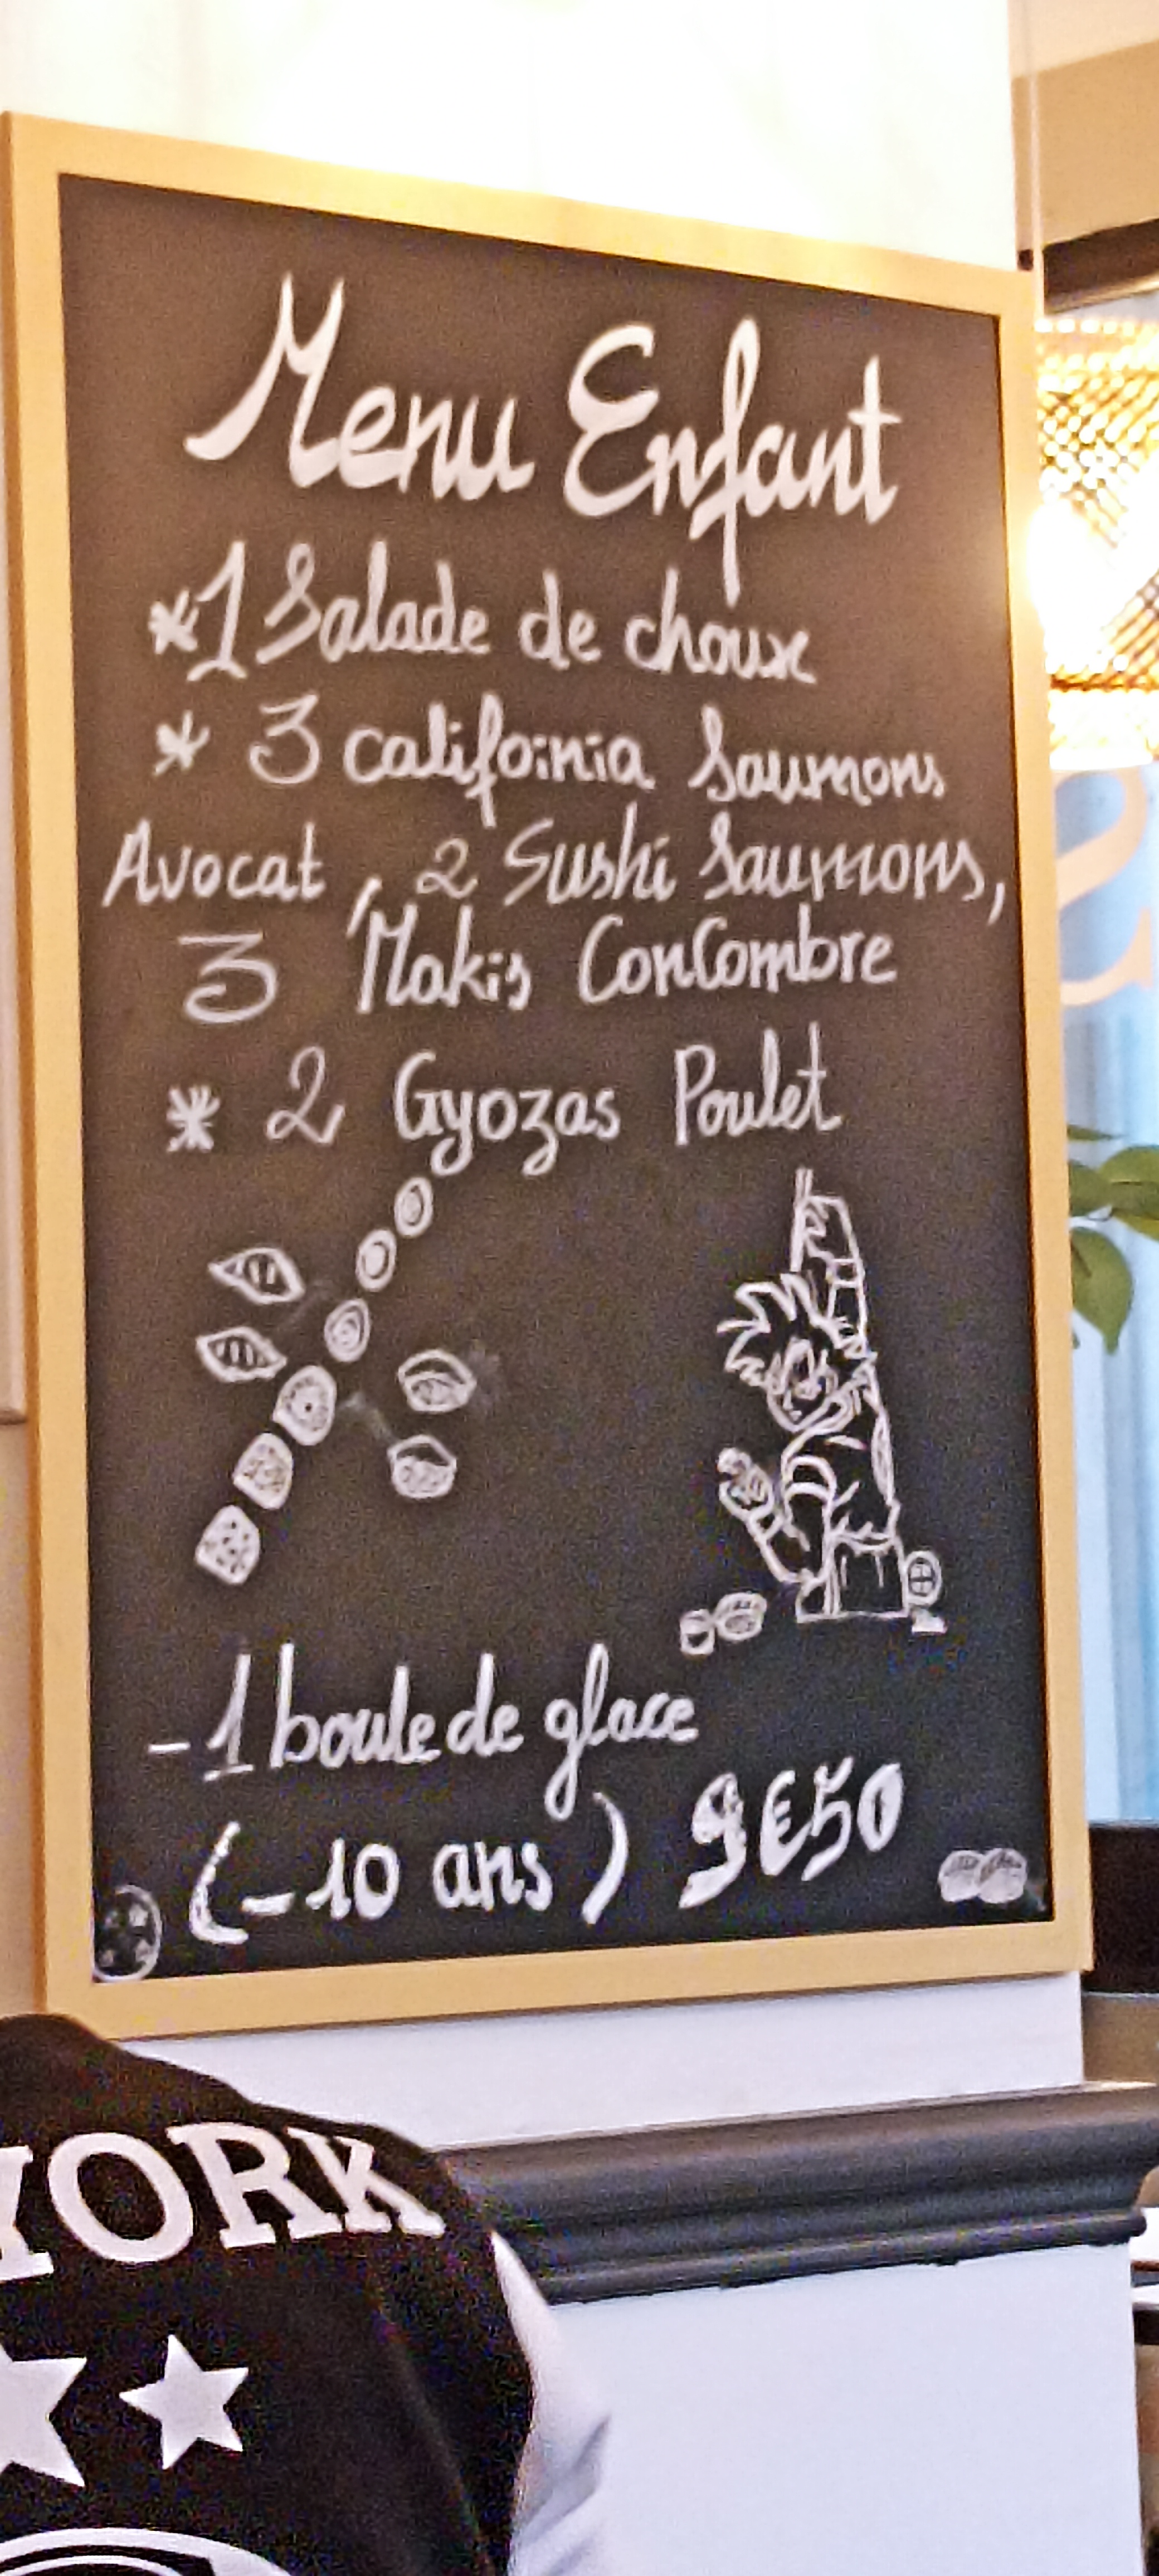 Menu Enfant
*1 Salade de choux
* 3 california Saumons
Avocat, 2 Sushi Saumons,
3 Makis Concombre
* 2 Gyozas Poulet
- 1 boule de glace
(-10 ans) 9€50
YORK